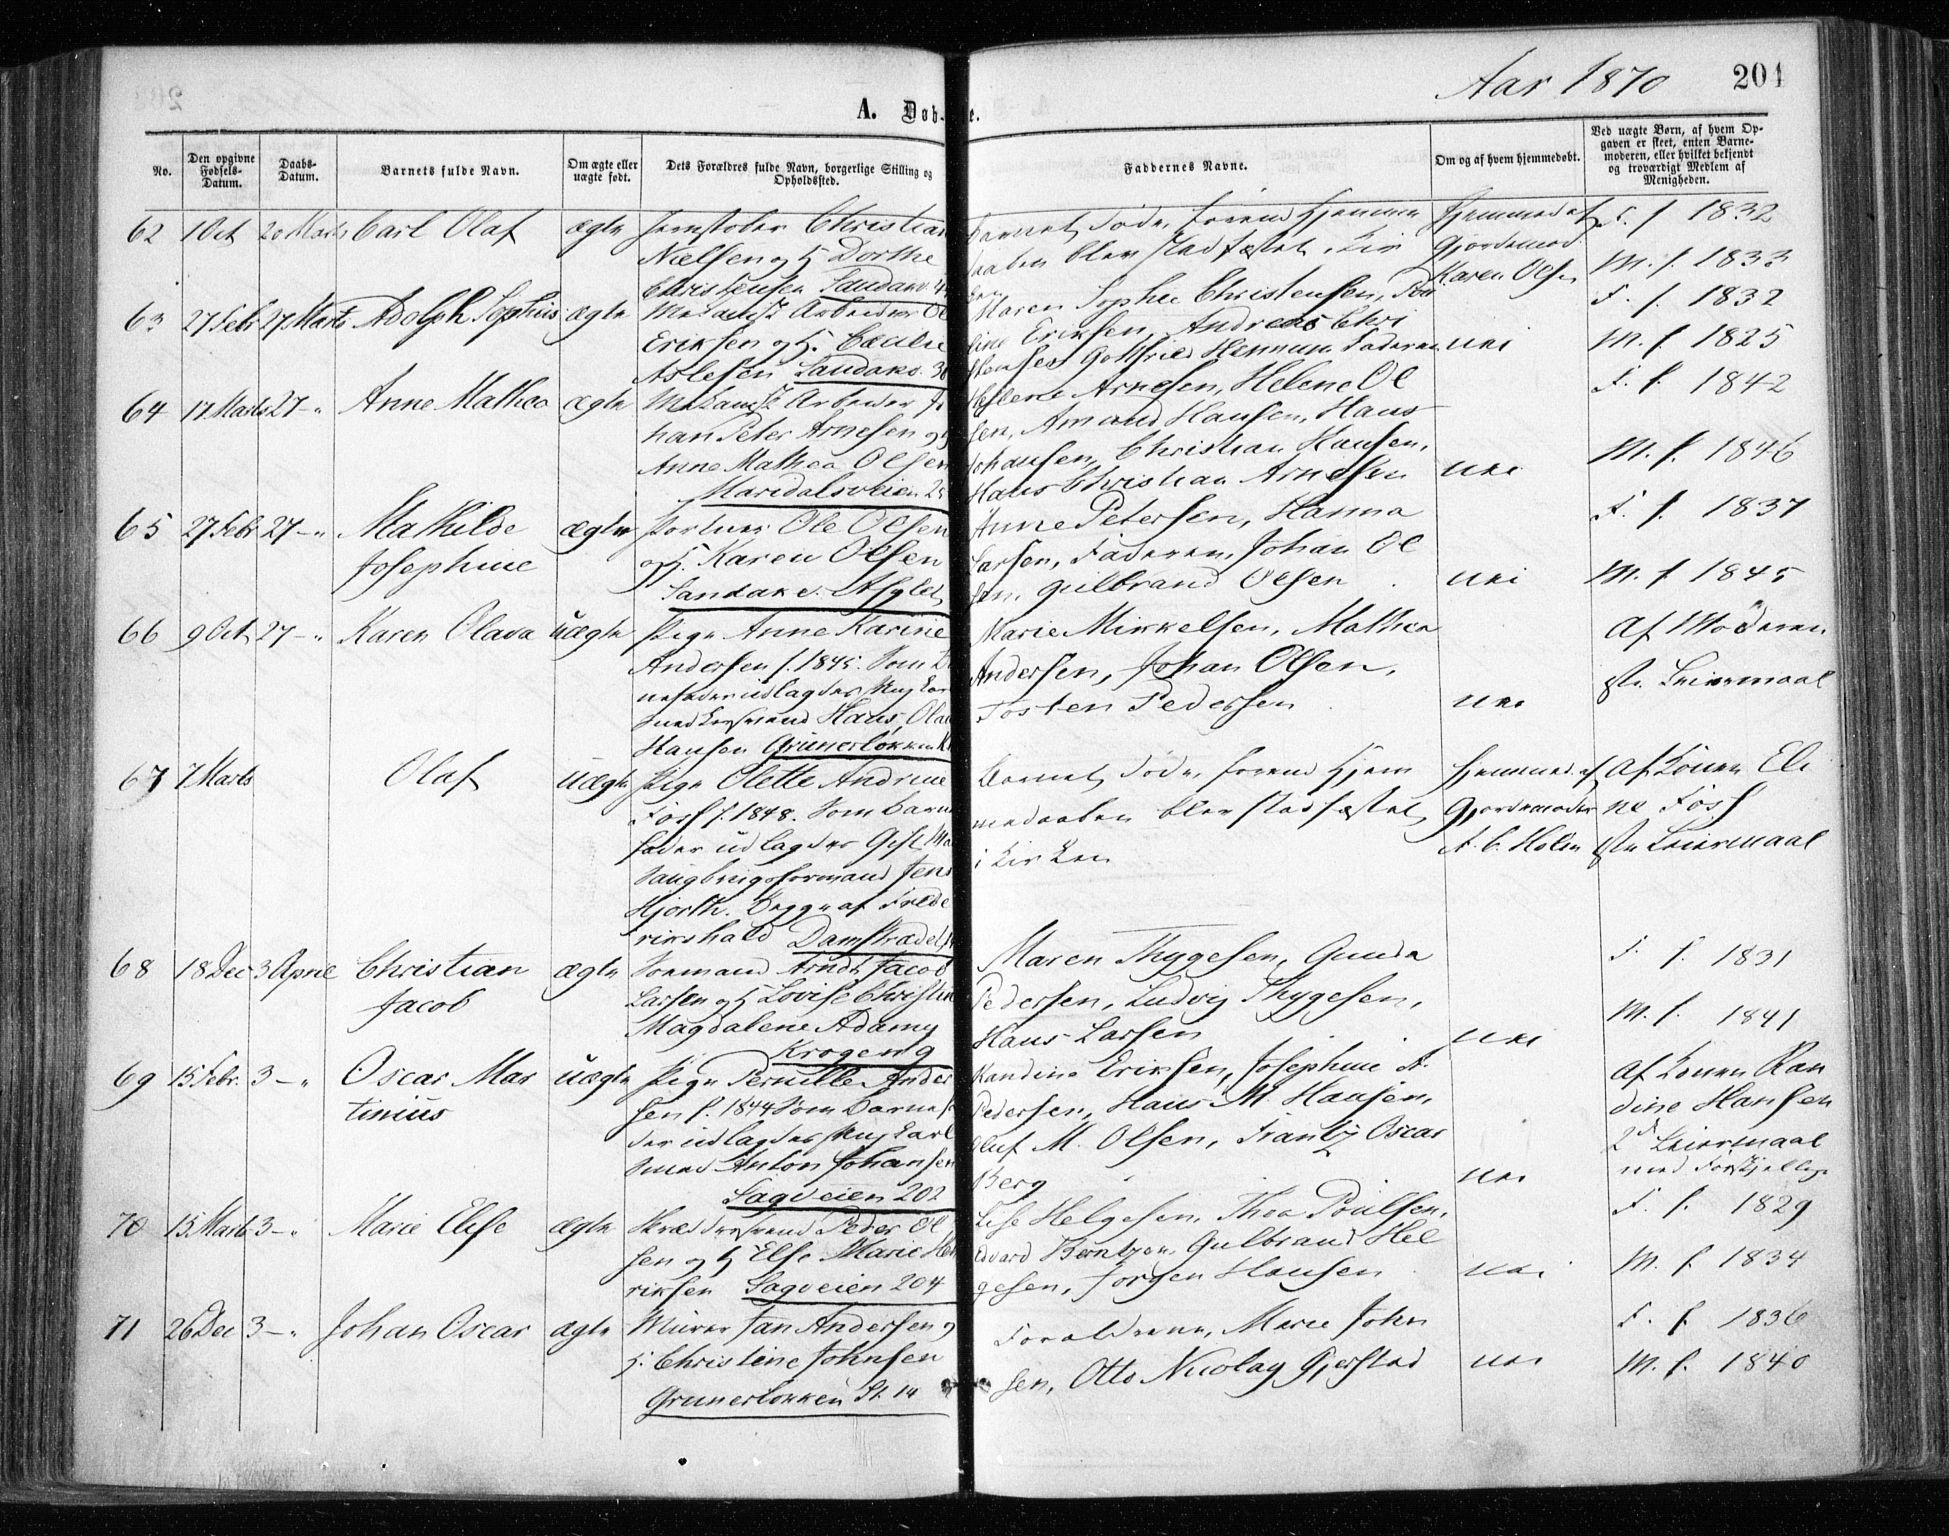 Aar 1870
201
A. Døb- e.
No.
Den opgivne Fødsels-Datum.
Daabs-Datum.
Barnets fulde Navn.
Om ægte eller uægte født.
Dets Forældres fulde Navn, borgerlige Stilling og Opholdssted.
Faddernes Navne.
Om og af hvem hjemmedøbt.
Ved uægte Børn, af hvem Opgaven er skeet, enten Barnemoderen, eller hvilket bekjendt og troværdigt Medlem af Menigheden.
62 1 Oct 20 Marts Carl Olaf ægte Jernstøber Christian
Nielsen og H. Dorthe
Christensen Sandakv. 44
Barnet døde, forend Hjemme
daaben blev stadfæstet i Kir
ken
Hjemmed. af
Gjordemod.
Karen Olsen
F. f. 1832
M. f. 1833
63 27 Febr 27 Marts Adolph Sophus ægte Mekanisk Arbeider Ole
Eriksen og H.
Aslesen Sandakv. 36
Maren Sophie Christensen, Pau
line Eriksen, Andreas Chri
stensen Gottfried Faderen
nei
F. f. 1832
M. f. 1825
64 17 Marts 27 - " Anne Mathea ægte Mekanisk Arbeider Jo
han Peter Arnesen og H
Anne Mathea Olsen
Maridalsveien 25
Arnesen, Helene Ol
sen, Amund Hansen, Hans
Johansen, Christian Hansen,
Hans Christian Arnesen
nei
F. f. 1842
M. f. 1846
65 27 Febr 27 - " Mathilde
Josephine
ægte Portner Ole Olsen
og H. Karen Olsen
Sandakv. Asylet
Anne Petersen, Hanna
Larsen, Faderen, Johan Ol
sen, Gulbrand Olsen
nei
F. f. 1837
M. f. 1845
66 9 Oct 27 - " Karen Olava uægte Pige Anne Karine
Andersen f. 1845. Som Bar
nefader udlagdes Ungkarl
Hans Olaf
Hansen Grünerløkken
Marie Mikkelsen, Mathea
Andersen, Johan Olsen,
Torsten Pedersen
nei
Af Moderen
1ste Leiermaal
67 7 Marts Olaf uægte Pige Olette Andrine
Foss f. 1848. Som Barne
fader udlagdes Gift
Saugbrugsformand Jens
Hjorth. Begge af Frede
rikshald Damstrædet
Barnet døde, forend Hjem
medaaben blev stadfæstet
i Kirken
Hjemmed. af
Gjordemoder
A. C. Holm
Af Konen Eli
ne Foss
1ste Leiermaal
68 18 Dec 3 April Christian
Jacob
ægte Formand Arndt Jacob
Larsen og H Lovise Christine
Magdalene Adamy
Krogeng
Maren Thygesen, Gunda
Pedersen, Ludvig Thygesen,
Hans Larsen
nei
F. f. 1831
M. f. 1841
69 15 Febr. 3 - " Oscar Mar
tinius
uægte Pige Pernille Ander
sen f. 1844 Som Barnefa
der udlagdes Ungkarl
Smed Anton Johansen
Sagveien 202
Randine Eriksen, Josephine A.
Pedersen, Hans M Hansen,
Oluf M. Olsen, Frantz Oscar
Berg
nei
Af Konen Ran
dine Hansen
2d Leiermaal
med Forskjellige
70 15 Marts 3 - " Marie Elise ægte Skrædersvend Peder Ol
sen og H Else Marie Hen
riksen Sagveien 204
Lise Helgesen, Thea Poulsen,
Edvard Berntzen, Gulbrand Hel
gesen, Jørgen Hansen
nei
F. f. 1829
M. f. 1834
71 26 Dec 3 - " Johan Oscar ægte Murer Jan Andersen og
H. Christine Johnsen
Grunerløkken St. 14
Forældrene, Marie John
sen, Otto Nicolay Gjerstad
nei
F. f. 1836
M. f. 1840